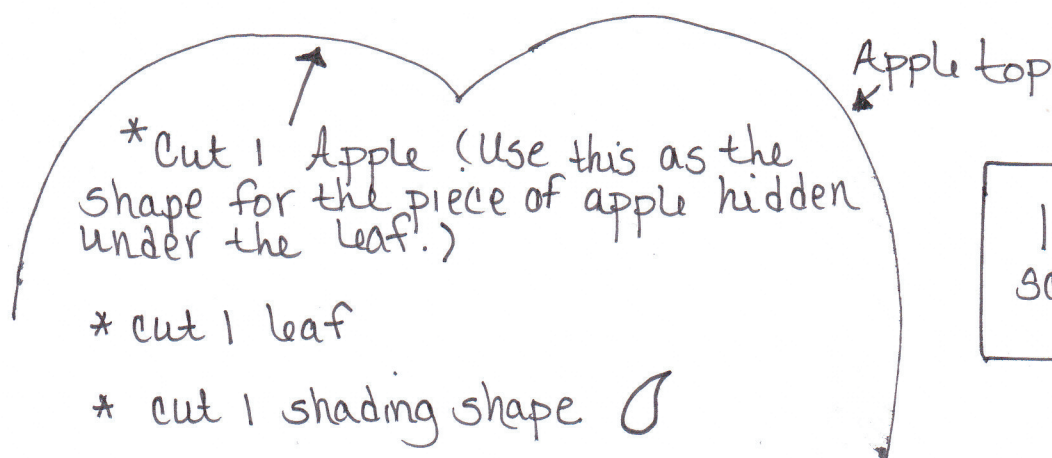 Apple top
*Cut 1 Apple (Use this as the
shape for the piece of apple hidden
under the leaf.)
* cut 1 leaf
* cut 1 shading shape
1